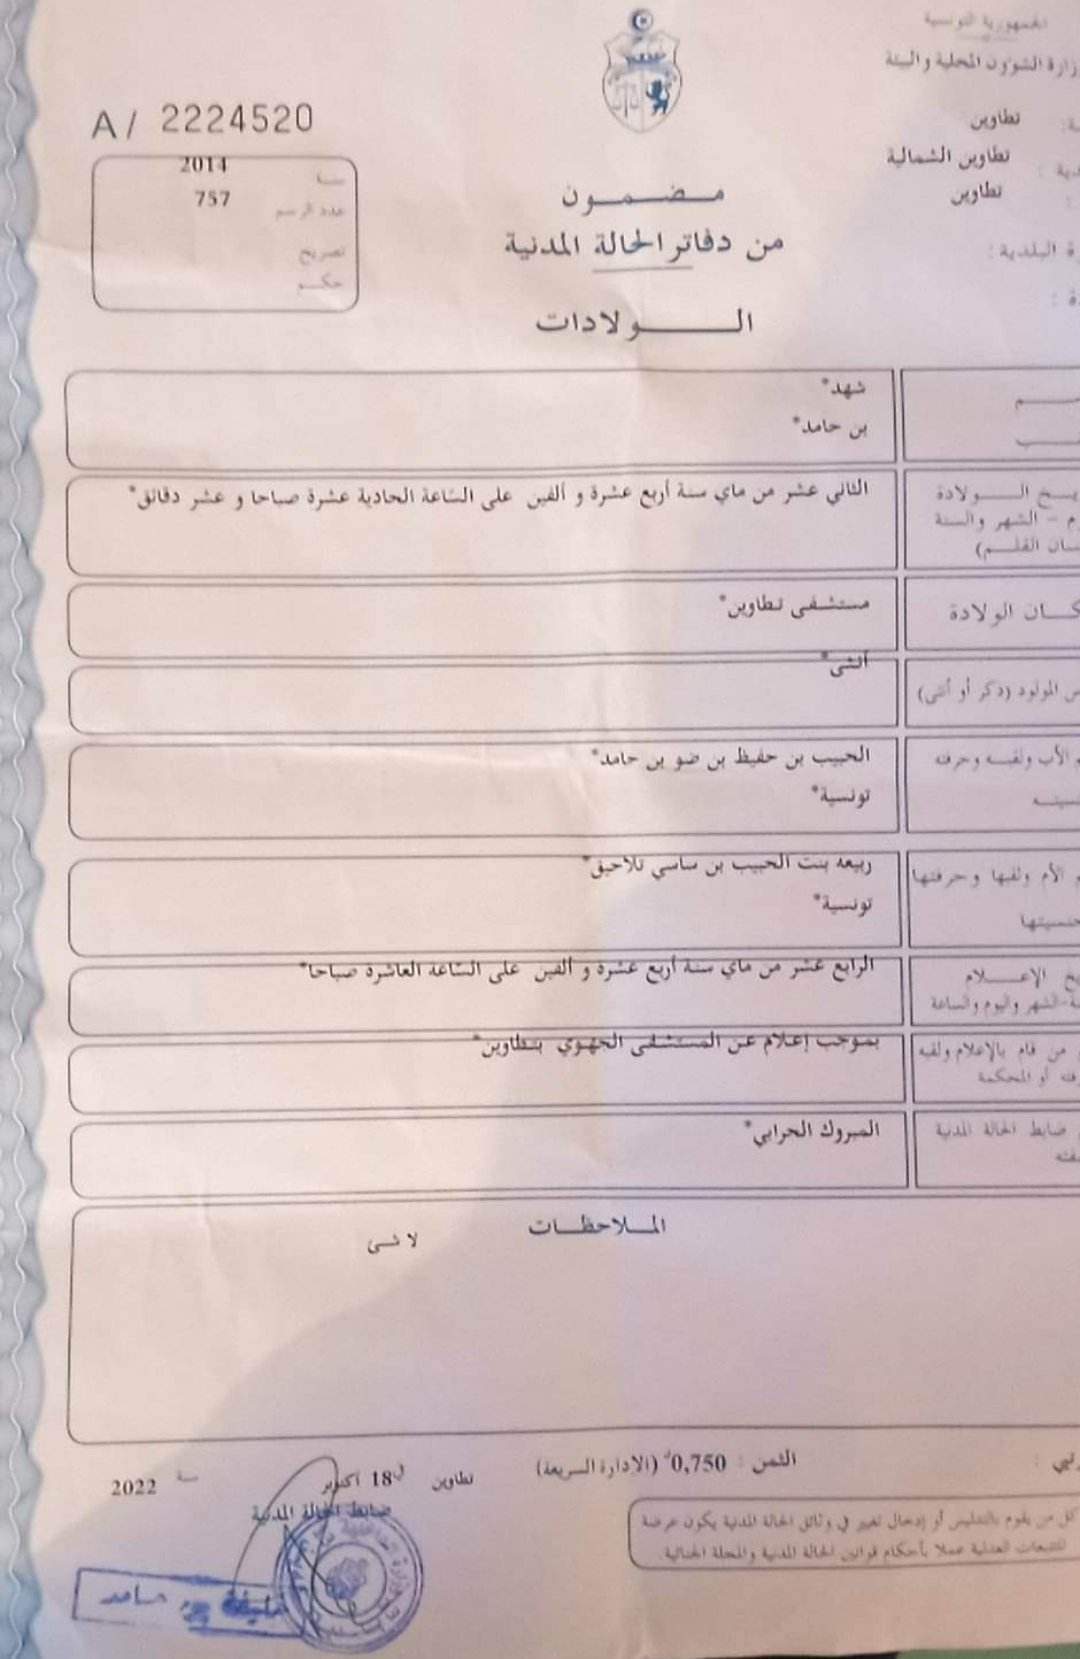 الجمهورية التونسية
وزارة الشؤون المحلية والبيئة
تطاوين
تطاوين الشمالية
تطاوين
ة البلدية :
A/ 2224520
2014
سنة
757
عدد الرسم
تصريح
حكم
مضمون
من دفاتر الحالة المدنية
الولادات
شهد*
بن حامد*
يخ الولادة
م - الشهر والسنة
سان القلم)
الثاني عشر من ماي سنة أربع عشرة و ألفين على الساعة الحادية عشرة صباحا و عشر دقائق*
كان الولادة
مستشفى تطاوين*
س المولود (ذكر أو أنثى)
أنثى*
م الأب ولقبه وحرفته
نسيته
الحبيب بن حفيظ بن ضو بن حامد*
تونسية*
م الأم ولقبها وحرفتها
جنسيتها
ربيعه بنت الحبيب بن ساسي تلاحيق*
تونسية*
يخ الإعلام
ة-الشهر واليوم والساعة
الرابع عشر من ماي سنة أربع عشرة و ألفين على الساعة العاشرة صباحا*
من قام بالإعلام ولقبه
فته أو المحكمة
بموجب إعلام عن المستشفى الجهوي بتطاوين*
ضابط الحالة المدنية
فته
المبروك الحرابي*
الملاحظات
لا شئ
الثمن : 0,750د (الادارة السريعة)
تطاوين في 18 أكتوبر سنة 2022
ضابط الحالة المدنية
كل من يقوم بالتدليس أو إدخال تغيير في وثائق الحالة المدنية يكون عرضة
للتتبعات العدلية عملا بأحكام قوانين الحالة المدنية والمجلة الجنائية.
خليفة بن حامد